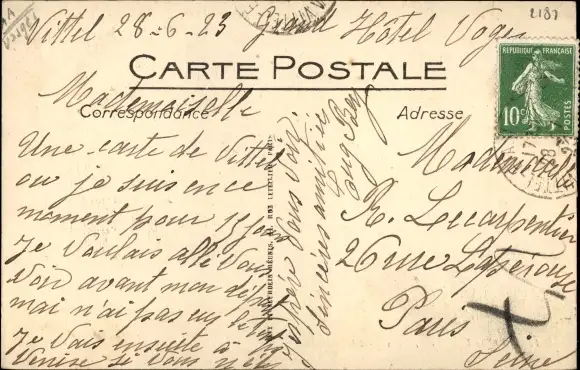 Vittel 28-6-23 Grand Hôtel Vosges
2187
CARTE POSTALE
Correspondance
Adresse
RÉPUBLIQUE FRANÇAISE
10c
POSTES
Mademoiselle
Une carte de Vittel
ou je suis en ce
moment pour 15 jours
Je voulais allé vous
voir avant mon départ
mai n'ai pas eu le temps
Je vais ensuite à
Venise si vous
J'espère vous voir.
Sincères amitiés
Mademoiselle
R. Lecarpentier
26 rue Laperouse
Paris
Seine